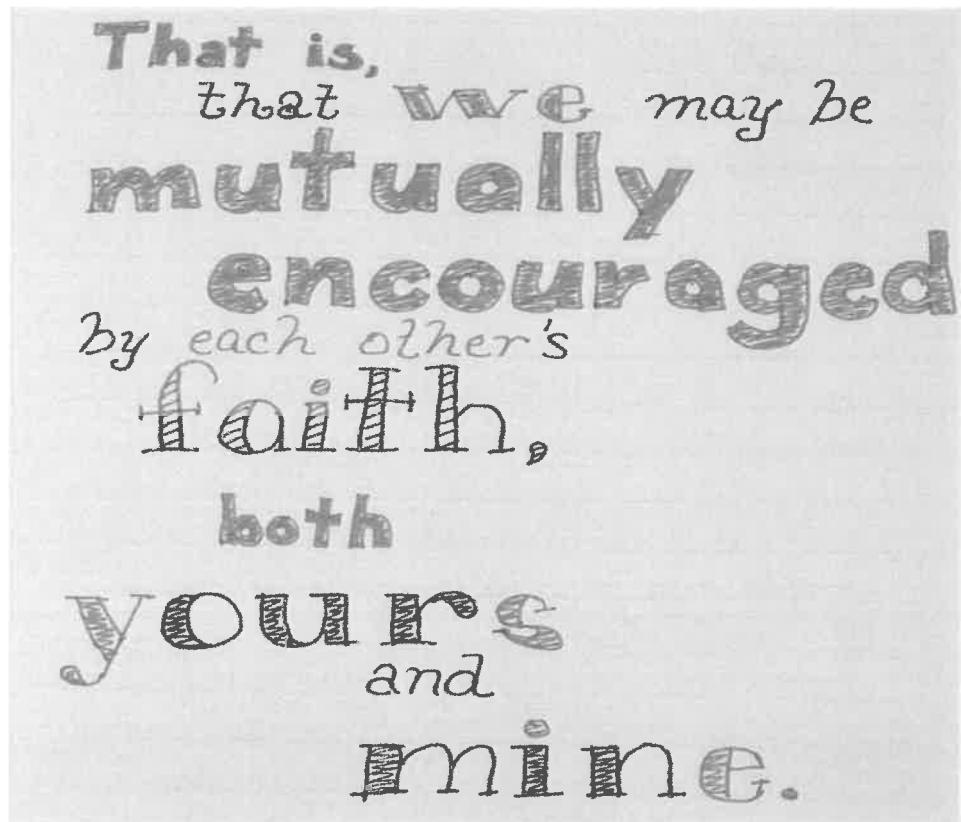 That is,
that we may be
mutually
encouraged
by each other's
faith,
both
yours
and
mine.